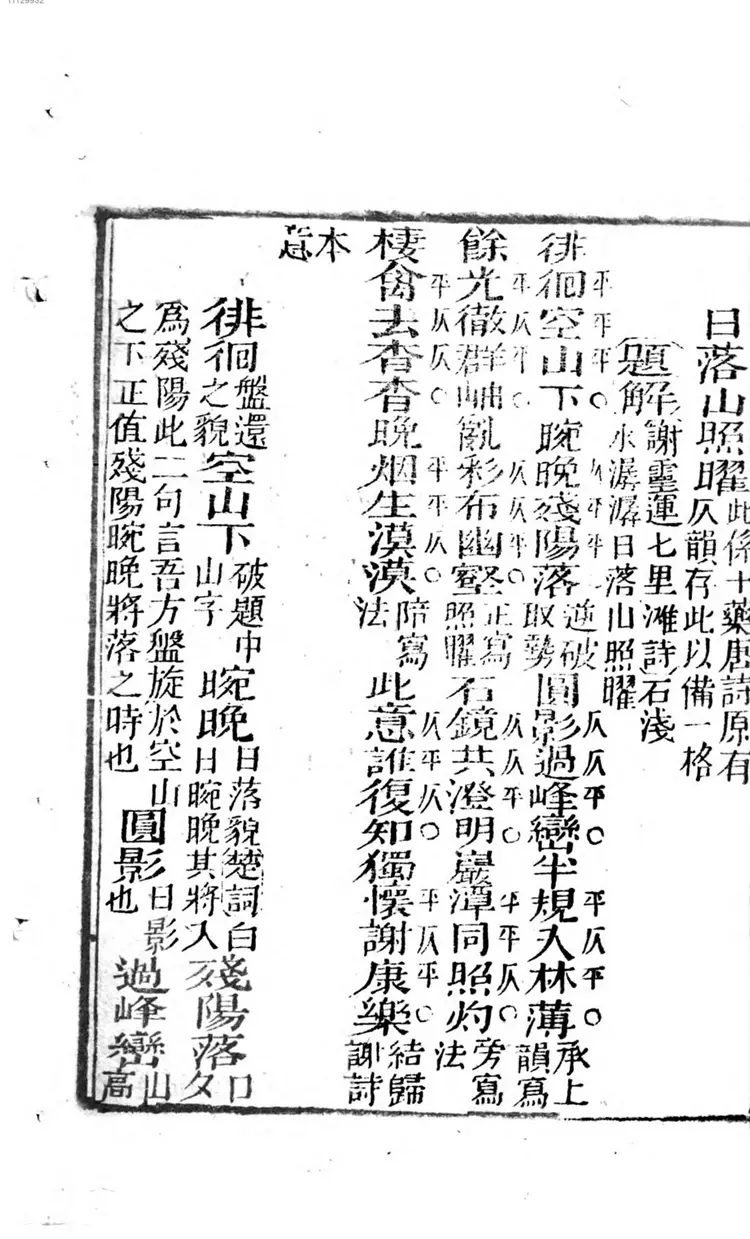 日落山照曜
此係十藥唐詩原有
仄韻存此以備一格
題解
謝靈運七里灘詩石淺
水潺潺日落山照曜
平平平○
仄仄平○
平仄平○
徘徊空山下晼晚殘陽落
逆破
取勢
圓影過峰巒半規入林薄
承上
韻寫
平仄平○
仄仄平○
仄仄平○
平平仄○
餘光徹群岫亂彩布幽壑
正寫
照曜
石鏡共澄明巖潭同照灼
旁寫
法
平仄仄○
平平仄○
仄平仄○
平仄平○
棲禽去杳杳晚烟生漠漠
陪寫
法
此意誰復知獨懷謝康樂
結歸
謝詩
本
意
徘徊
盤還
之貌
空山下
破題中
山字
晼晚
日落貌楚詞白
日晼晚其將入
殘陽落
夕
為殘陽此二句言吾方盤旋於空山
之下正值殘陽晼晚將落之時也
圓影
日影
也
過峰巒
山
高